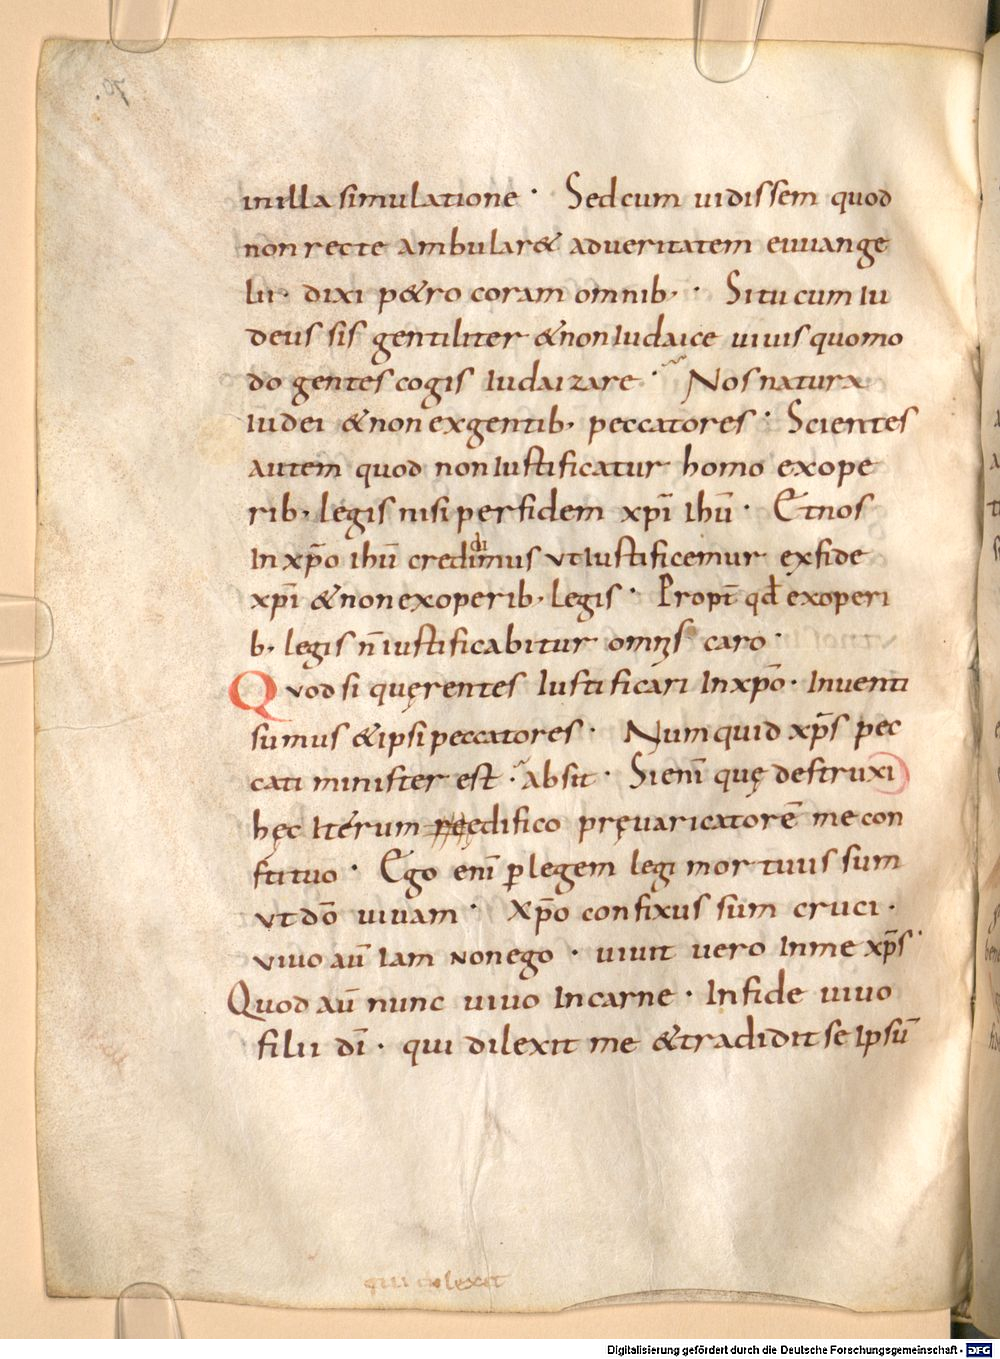 in illa simulatione · Sed cum uidissem quod
non recte ambular& ad ueritatem euuange
lii · dixi p&ro coram omnib; · Si tu cum iu
deus sis gentiliter & non iudaice uiuis quomo
do gentes cogis iudaizare · Nos natura
iudei & non ex gentib; peccatores · Scientes
autem quod non iustificatur homo ex ope
rib; legis nisi per fidem xp̄i ihū · Et nos
in xp̄o ihū credimus ut iustificemur ex fide
xp̄i & non ex operib; legis · Propt̄ qđ ex operi
b; legis n̄ iustificabitur omnis caro ·
Quod si quęrentes iustificari in xp̄o · inuenti
sumus & ipsi peccatores · Numquid xp̄s pec
cati minister est · absit · Si enī quę destruxi
hęc iterum reędifico pręuaricatorē me con
stituo · Ego enī ꝑ legem legi mortuus sum
ut dō uiuam · Xp̄o confixus sum cruci ·
uiuo aū iam non ego · uiuit uero in me xp̄s ·
Quod aū nunc uiuo in carne · In fide uiuo
filii dī · qui dilexit me & tradidit se ipsū
qui dilexit
Digitalisierung gefördert durch die Deutsche Forschungsgemeinschaft - DFG